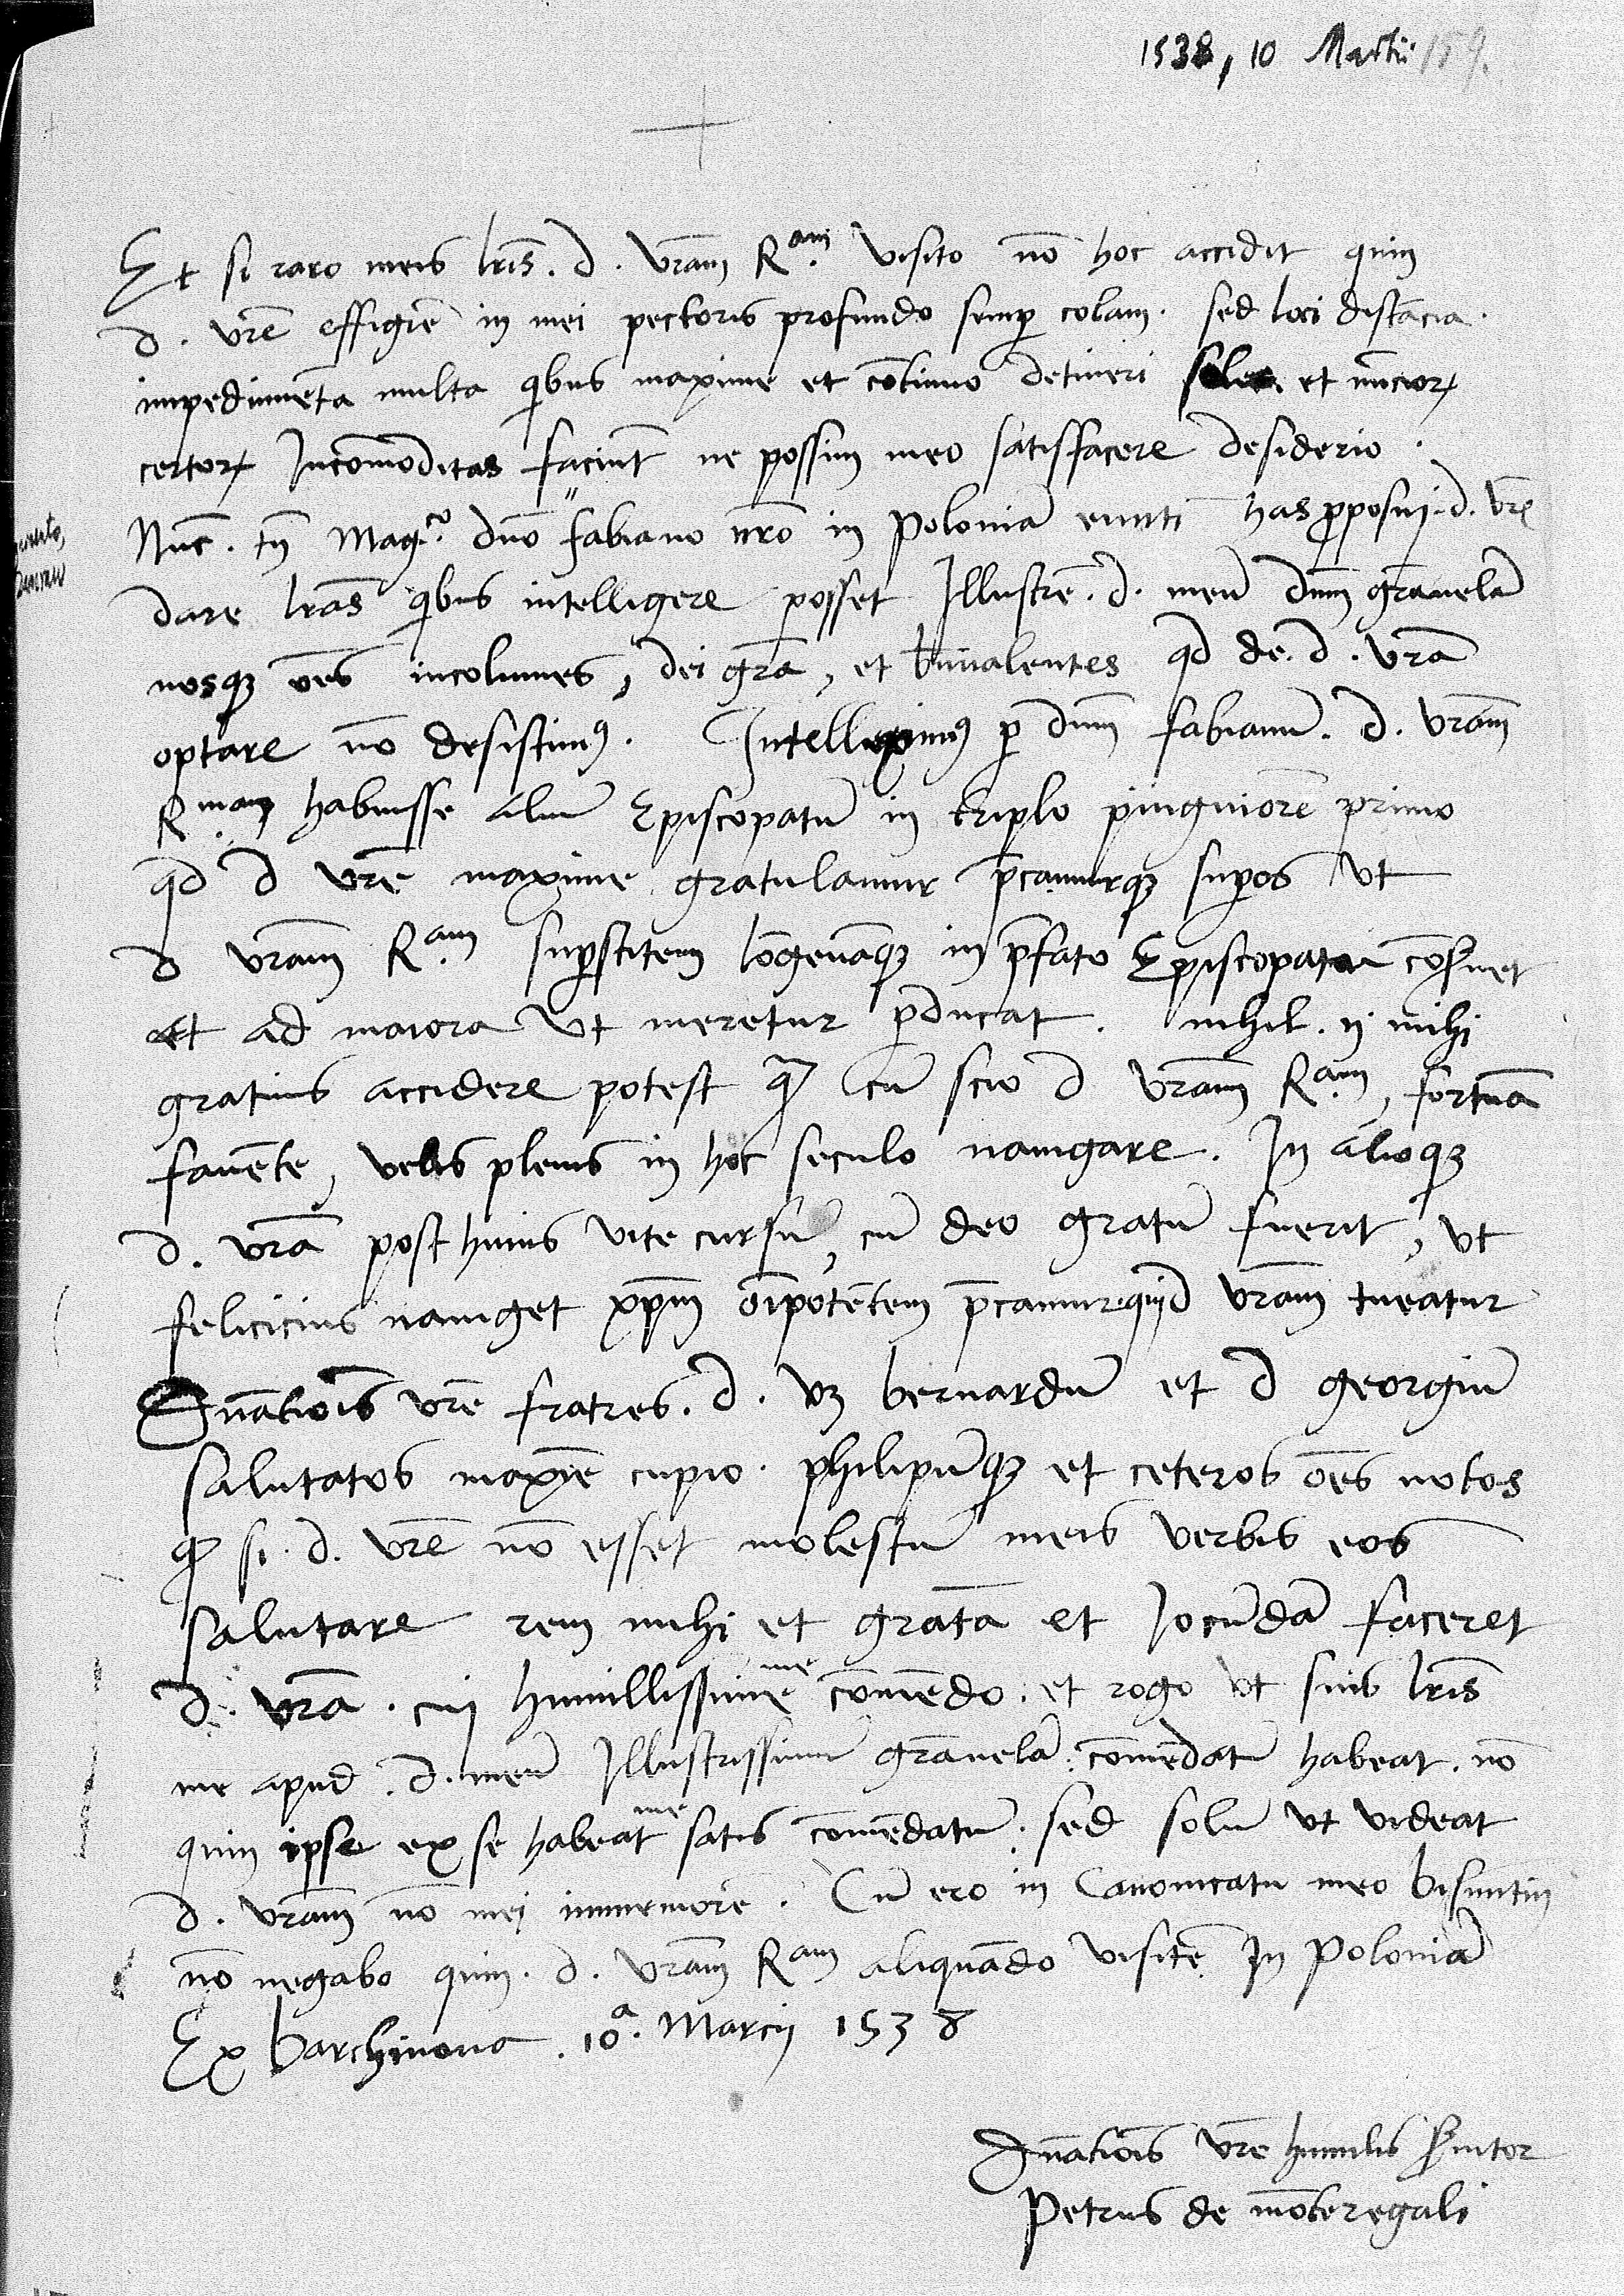 1538, 10 Martii 159.
Et si raro meis lris̄. d. vrām Ram. visito nō hoc accidit quin
d. vrē effigiē in mei pectoris profundo semp̄ colam. sed loci distācia.
impedimēta multa qibus maxime et cōtinuo detineri soleo et nūcioꝝ
certoꝝ Incōmoditas faciūt ne possim meo satisfacere desiderio.
Nūc. tn̄ Mag.co dn̄o fabiano nr̄o in poloniā eunti has p̄posui. d. vrē
dare lrās qibus intelligere posset Illustrē. d. meū dnm̄ grāuelā
nosqꝫ oēs incolumes, dei grā, et bn̄ualentes qd de. d. vrā
optare nō desistimꝰ. Intelleximꝰ p̄ dnm̄ fabianū. d. vrām
R.mam habuisse aliū Episcopatū in triplo pinguiorē primo
qd d vrē maxime gratulamur p̄camurqꝫ sup̄os vt
d vrām R.am sup̄stitem lōgeuāqꝫ in p̄fato Episcopatu cōs̄uet
et ad maiora vt meretur p̄ducat. nihil. n̄ mihi
gratius accidere potest qꝫ cū scio d vrām R.am, fortunā
fauēte, velis plenis in hoc seculo nauigare. In alioqꝫ
d. vrā post huius vite cursū, cū deo gratū fuerit, vt
felicicius nauiget xpm̄ oīpotētem p̄camur qui d vrām tueatur
Dn̄atiōis vrē fratres. d. vꝫ bernardū et d georgiū
salutatos maxīe cupio. philipūqꝫ et ceteros oēs notos
qꝫ si. d. vrē nō esset molestū meis verbis eos
salutare rem mihi et gratā et Jocūdā faceret
d. vrā. cui humillissime me cōmēdo. et rogo vt suis lris̄
me apud. d. meū Illustrissimū grāuelā. cōmēdatū habeat. nō
quin ipse ex se habeat me satis cōmēdatū. sed solū vt videat
d. vrām nō mei immemorē. Cū ero in Canonicatu meo bisuntin
nō negabo quin. d. vrām Ram aliquādo visitē In poloniā
Ex barchinona. 10a. Marcij 1538
Dn̄atiōis vrē humilis s̄uitor
Petrus de mōteregali